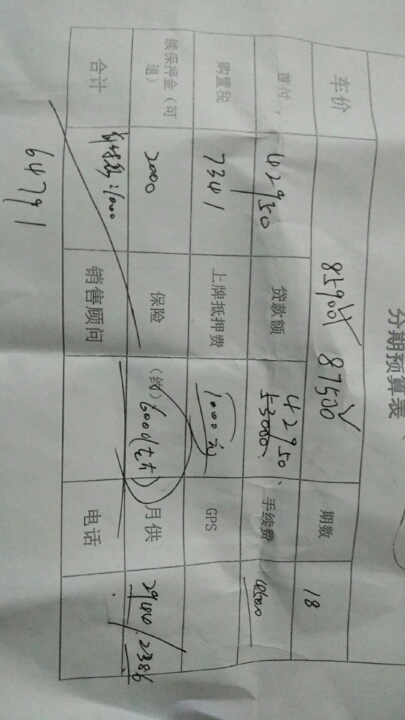 分期预算表
车价 85900 87500 期数 18
首付 42950 贷款额 42950 53000 手续费
购置税 7341 上牌抵押费 1000元 GPS
续保押金（可退） 2000 保险 (约) 6000 月供 2386
合计 销售顾问 电话
64791